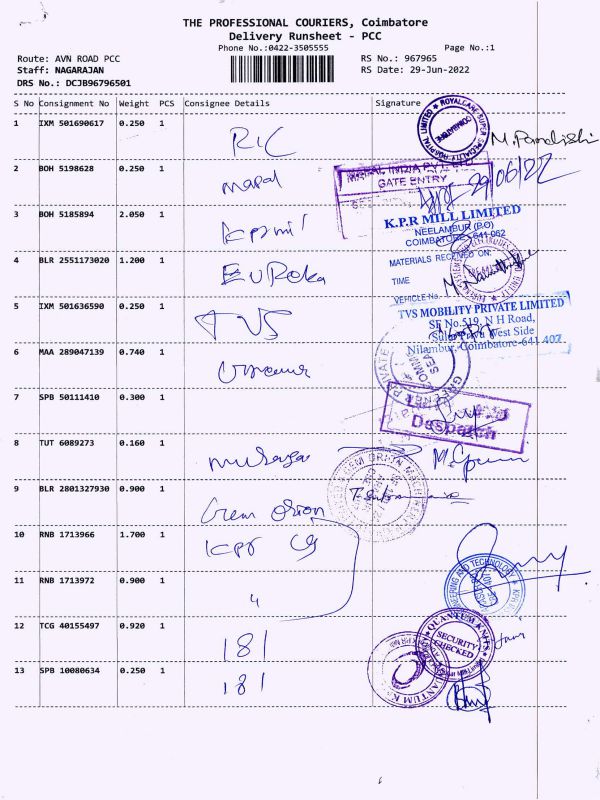 THE PROFESSIONAL COURIERS, Coimbatore
Delivery Runsheet - PCC
Phone No.:0422-3505555
Page No.:1
Route: AVN ROAD PCC
RS No.: 967965
Staff: NAGARAJAN
RS Date: 29-Jun-2022
DRS No.: DCJB96796501
S No Consignment No Weight PCS Consignee Details Signature
1 IXM 501690617 0.250 1
ROYALCARE SUPER SPECIALITY HOSPITAL LIMITED
COIMBATORE
2 BOH 5198628 0.250 1 mapal
MAPAL INDIA PVT. LTD
GATE ENTRY
29/06/22
3 BOH 5185894 2.050 1 kprmil
K.P.R MILL LIMITED
NEELAMBUR (P.O)
COIMBATORE - 641 062
MATERIALS RECEIVED ON:
TIME
VEHICLE No.
4 BLR 2551173020 1.200 1 EURoka
5 IXM 501636590 0.250 1 TVS
TVS MOBILITY PRIVATE LIMITED
SF No.519, N H Road,
West Side
Nilambur, Coimbatore-641 402.
6 MAA 289047139 0.740 1
7 SPB 50111410 0.300 1
Despatch
8 TUT 6089273 0.160 1
9 BLR 2801327930 0.900 1 Gem orion
10 RNB 1713966 1.700 1 kpr
11 RNB 1713972 0.900 1 "
12 TCG 40155497 0.920 1 181
QUANTUM KNITS
SECURITY
CHECKED
13 SPB 10080634 0.250 1 181